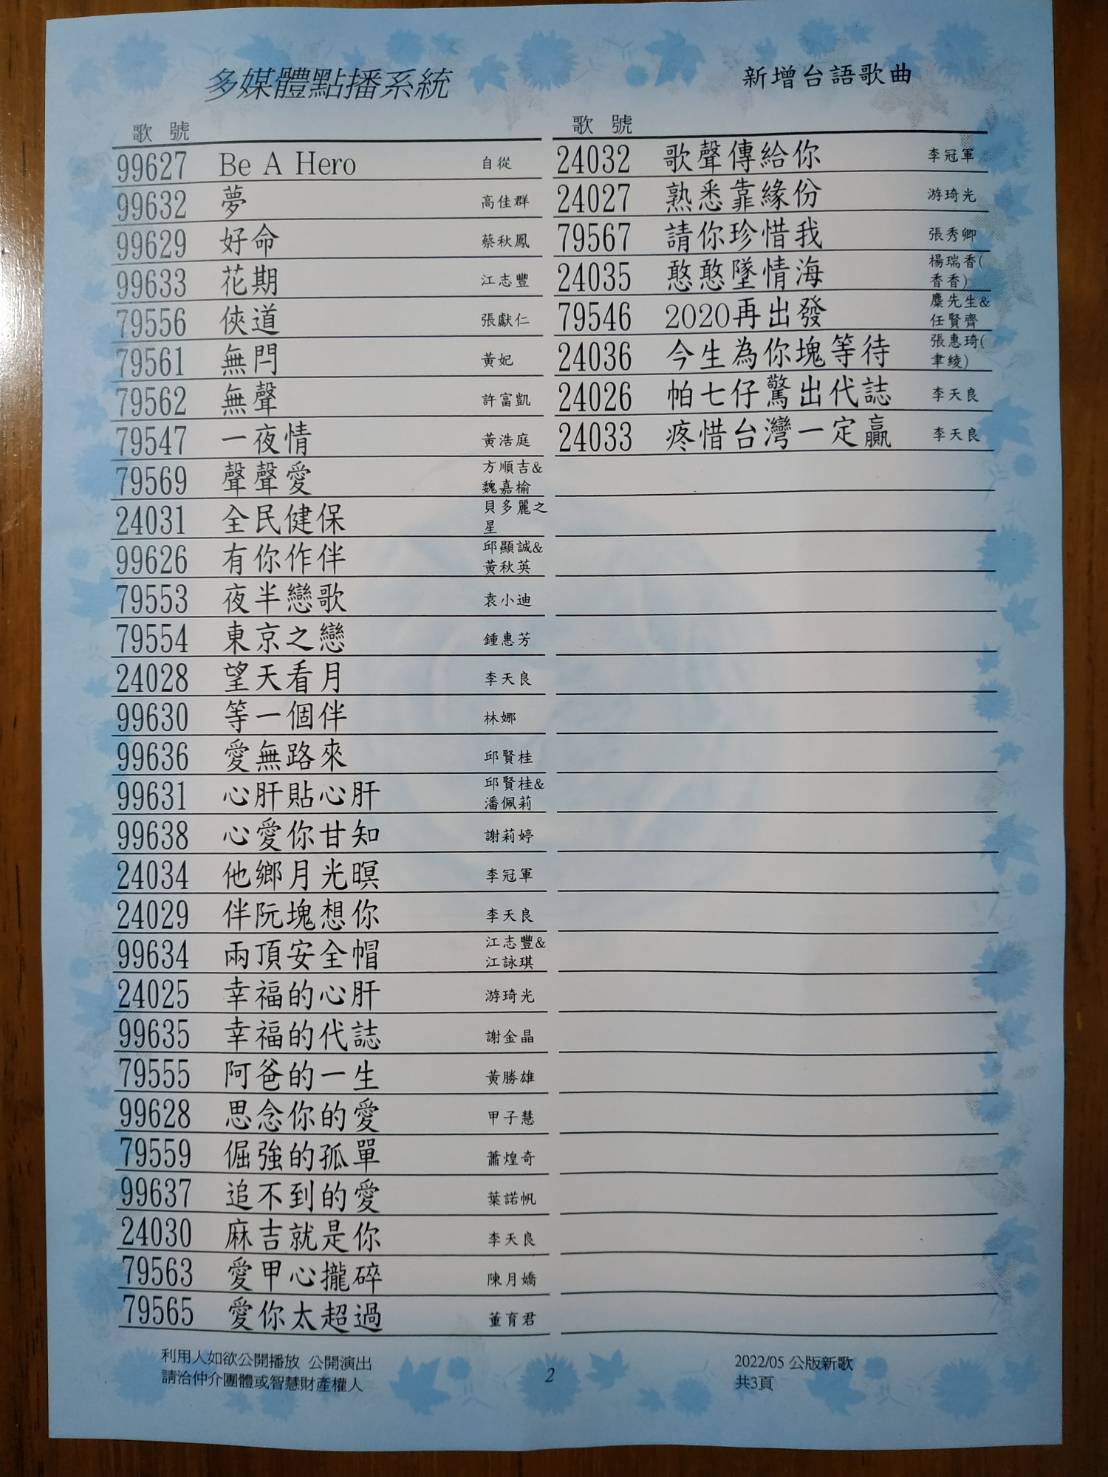 多媒體點播系統
新增台語歌曲
歌 號
99627 Be A Hero 自從
99632 夢 高佳群
99629 好命 蔡秋鳳
99633 花期 江志豐
79556 俠道 張獻仁
79561 無門 黃妃
79562 無聲 許富凱
79547 一夜情 黃浩庭
79569 聲聲愛 方順吉&
魏嘉榆
24031 全民健保 貝多麗之
星
99626 有你作伴 邱顯誠&
黃秋英
79553 夜半戀歌 袁小迪
79554 東京之戀 鍾惠芳
24028 望天看月 李天良
99630 等一個伴 林娜
99636 愛無路來 邱賢桂
99631 心肝貼心肝 邱賢桂&
潘佩莉
99638 心愛你甘知 謝莉婷
24034 他鄉月光暝 李冠軍
24029 伴阮塊想你 李天良
99634 兩頂安全帽 江志豐&
江詠琪
24025 幸福的心肝 游琦光
99635 幸福的代誌 謝金晶
79555 阿爸的一生 黃勝雄
99628 思念你的愛 甲子慧
79559 倔強的孤單 蕭煌奇
99637 追不到的愛 葉諾帆
24030 麻吉就是你 李天良
79563 愛甲心攏碎 陳月嬌
79565 愛你太超過 董育君
歌 號
24032 歌聲傳給你 李冠軍
24027 熟悉靠緣份 游琦光
79567 請你珍惜我 張秀卿
24035 憨憨墜情海 楊瑞香(
香香)
79546 2020再出發 麋先生&
任賢齊
24036 今生為你塊等待 張惠琦(
聿綾)
24026 帕七仔驚出代誌 李天良
24033 疼惜台灣一定贏 李天良
利用人如欲公開播放 公開演出
請洽仲介團體或智慧財產權人
2
2022/05 公版新歌
共3頁